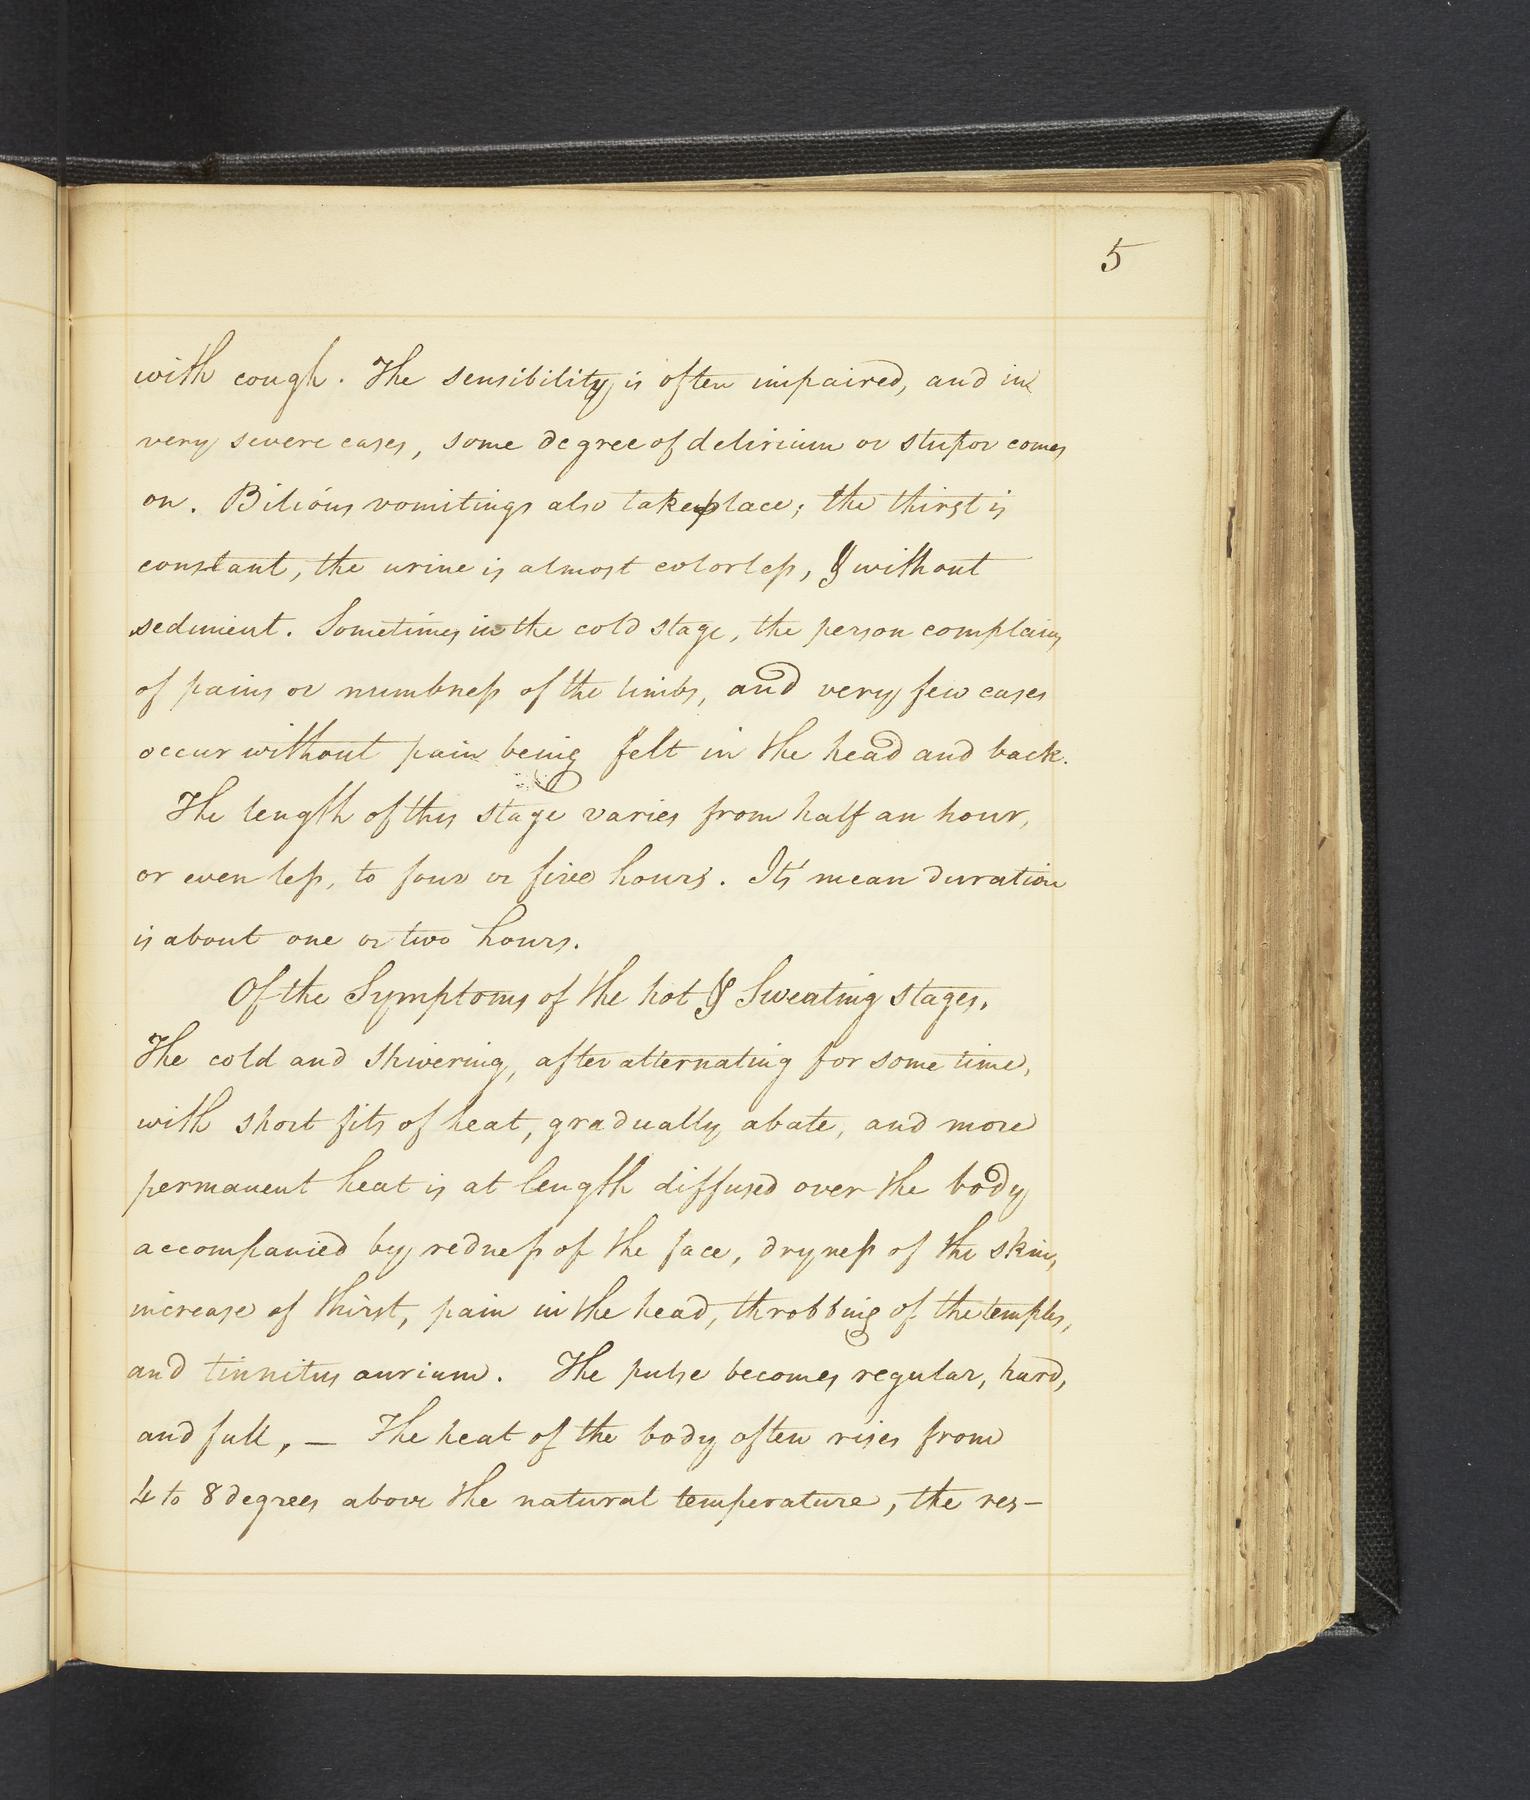 5
with cough. The sensibility is often impaired, and in
very severe cases, some degree of delirium or stupor comes
on. Bilious vomitings also take place; the thirst is
constant, the urine is almost colorless, & without
sediment. Sometimes in the cold stage, the person complains
of pains or numbness of the limbs, and very few cases
occur without pain being felt in the head and back.
The length of this stage varies from half an hour,
or even less, to four or five hours. It's mean duration
is about one or two hours.
Of the Symptoms of the hot & Sweating stages.
The cold and shivering, after alternating for some time,
with short fits of heat, gradually abate, and more
permanent heat is at length diffused over the body
accompanied by redness of the face, dryness of the skin,
increase of thirst, pain in the head, throbbing of the temples,
and tinnitus aurium. The pulse becomes regular, hard,
and full, — The heat of the body often rises from
4 to 8 degrees above the natural temperature, the res-